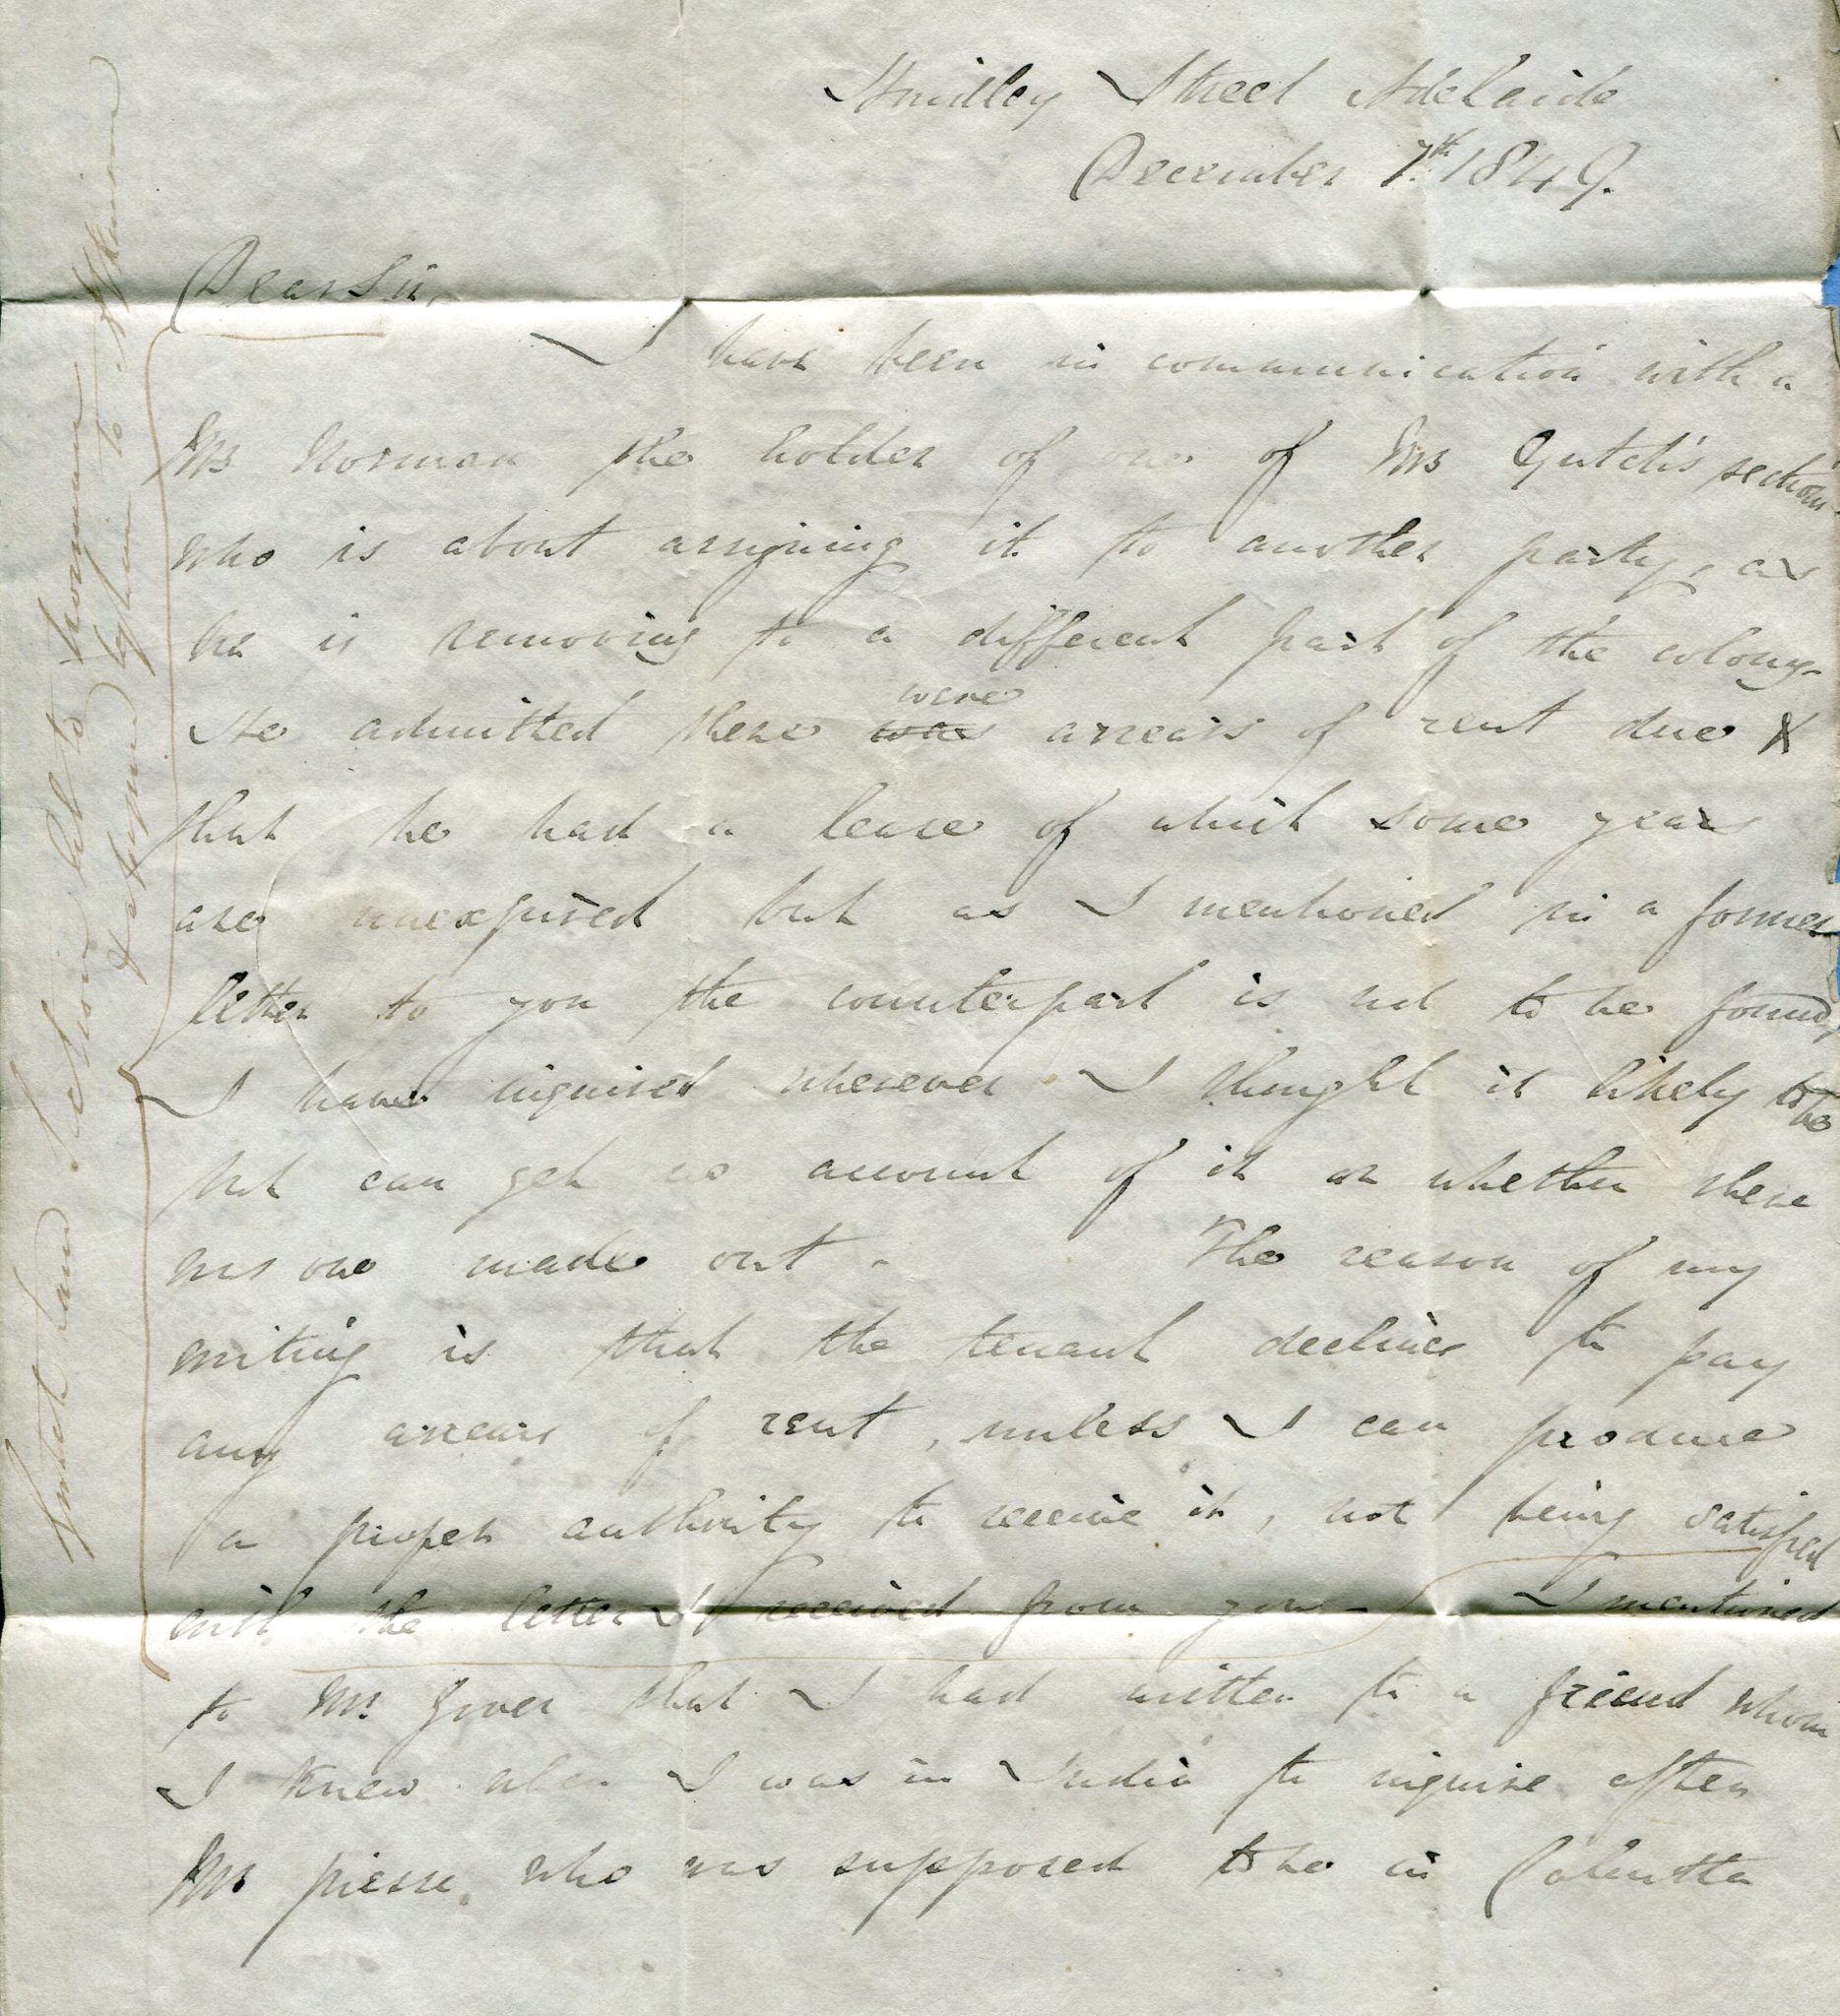 Hindley Street Adelaide
December 7th 1849.
Dear Sir,
I have been in communication with a
Mr Norman the holder of one of Mr Gutch's sections
who is about assigning it to another party, as
he is removing to a different part of the colony-
He admitted there were was arrears of rent due &
that he had a lease of which some years
are unexpired but as I mentioned in a former
letter to you the counterpart is not to be found,
I have inquired wherever I thought it likely to be
but can get no account of it or whether there
was one made out - The reason of my
writing is that the tenant declines to pay
any arrears of rent, unless I can produce
a proper authority to receive it, not being satisfied
with the letter I received from you - I mentioned
to Mr that I had written to a friend whom
I knew when I was in India to inquire after
Mr piesse, who was supposed to be in Calcutta
Gutch land Section let to Norman
& assigned by him to